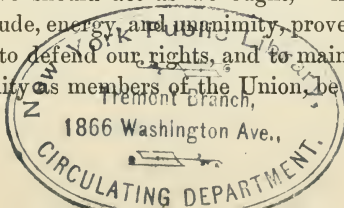 ude, energy, and unanimity, prove
to defend our rights, and to main
ity as members of the Union, be
New York Public Library,
Tremont Branch,
1866 Washington Ave.,
CIRCULATING DEPARTMENT.